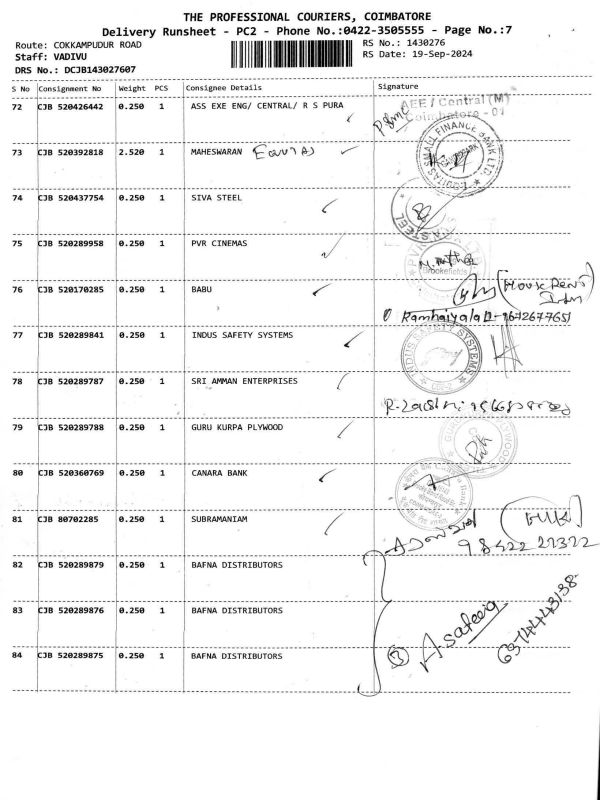 THE PROFESSIONAL COURIERS, COIMBATORE
Delivery Runsheet - PC2 - Phone No.:0422-3505555 - Page No.:7
Route: COKKAMPUDUR ROAD
RS No.: 1430276
Staff: VADIVU
RS Date: 19-Sep-2024
DRS No.: DCJB143027607
S No Consignment No Weight PCS Consignee Details Signature
72 CJB 520426442 0.250 1 ASS EXE ENG/ CENTRAL/ R S PURA
AEE / Central (M)
Coimbatore - 01
73 CJB 520392818 2.520 1 MAHESWARAN Equitas
EQUITAS SMALL FINANCE BANK LTD.
74 CJB 520437754 0.250 1 SIVA STEEL
SIVA STEEL
75 CJB 520289958 0.250 1 PVR CINEMAS
Brookefields
76 CJB 520170285 0.250 1 BABU
77 CJB 520289841 0.250 1 INDUS SAFETY SYSTEMS
INDUS SAFETY SYSTEMS
78 CJB 520289787 0.250 1 SRI AMMAN ENTERPRISES
79 CJB 520289788 0.250 1 GURU KURPA PLYWOOD
80 CJB 520360769 0.250 1 CANARA BANK
Canara Bank
81 CJB 80702285 0.250 1 SUBRAMANIAM
98422 22322
82 CJB 520289879 0.250 1 BAFNA DISTRIBUTORS
83 CJB 520289876 0.250 1 BAFNA DISTRIBUTORS
84 CJB 520289875 0.250 1 BAFNA DISTRIBUTORS
3 A. Safeeq